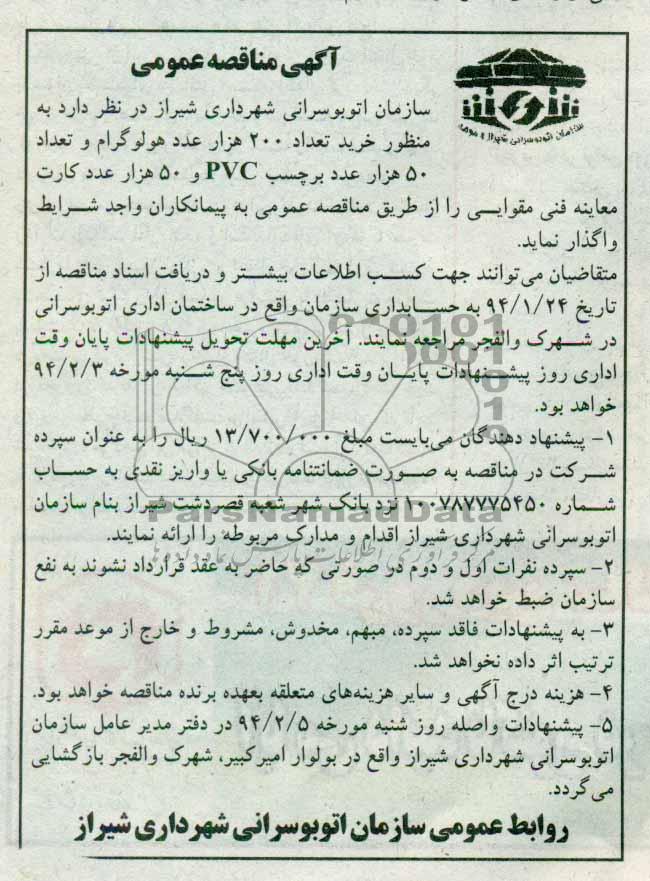 آگهی مناقصه عمومی
سازمان اتوبوسرانی شیراز و حومه
سازمان اتوبوسرانی شهرداری شیراز در نظر دارد به
منظور خرید تعداد ۲۰۰ هزار عدد هولوگرام و تعداد
۵۰ هزار عدد برچسب PVC و ۵۰ هزار عدد کارت
معاینه فنی مقوایی را از طریق مناقصه عمومی به پیمانکاران واجد شرایط
واگذار نماید.
متقاضیان می‌توانند جهت کسب اطلاعات بیشتر و دریافت اسناد مناقصه از
تاریخ ۹۴/۱/۲۴ به حسابداری سازمان واقع در ساختمان اداری اتوبوسرانی
در شهرک والفجر مراجعه نمایند. آخرین مهلت تحویل پیشنهادات پایان وقت
اداری روز پیشنهادات پایان وقت اداری روز پنج شنبه مورخه ۹۴/۲/۳
خواهد بود.
۱- پیشنهاد دهندگان می‌بایست مبلغ ۱۳/۷۰۰/۰۰۰ ریال را به عنوان سپرده
شرکت در مناقصه به صورت ضمانتنامه بانکی یا واریز نقدی به حساب
شماره ۱۰۰۷۸۷۷۷۵۴۵۰ نزد بانک شهر شعبه قصردشت شیراز بنام سازمان
اتوبوسرانی شهرداری شیراز اقدام و مدارک مربوطه را ارائه نمایند.
۲- سپرده نفرات اول و دوم در صورتی که حاضر به عقد قرارداد نشوند به نفع
سازمان ضبط خواهد شد.
۳- به پیشنهادات فاقد سپرده، مبهم، مخدوش، مشروط و خارج از موعد مقرر
ترتیب اثر داده نخواهد شد.
۴- هزینه درج آگهی و سایر هزینه‌های متعلقه بعهده برنده مناقصه خواهد بود.
۵- پیشنهادات واصله روز شنبه مورخه ۹۴/۲/۵ در دفتر مدیر عامل سازمان
اتوبوسرانی شهرداری شیراز واقع در بولوار امیرکبیر، شهرک والفجر بازگشایی
می‌گردد.
روابط عمومی سازمان اتوبوسرانی شهرداری شیراز
ParsNamadData